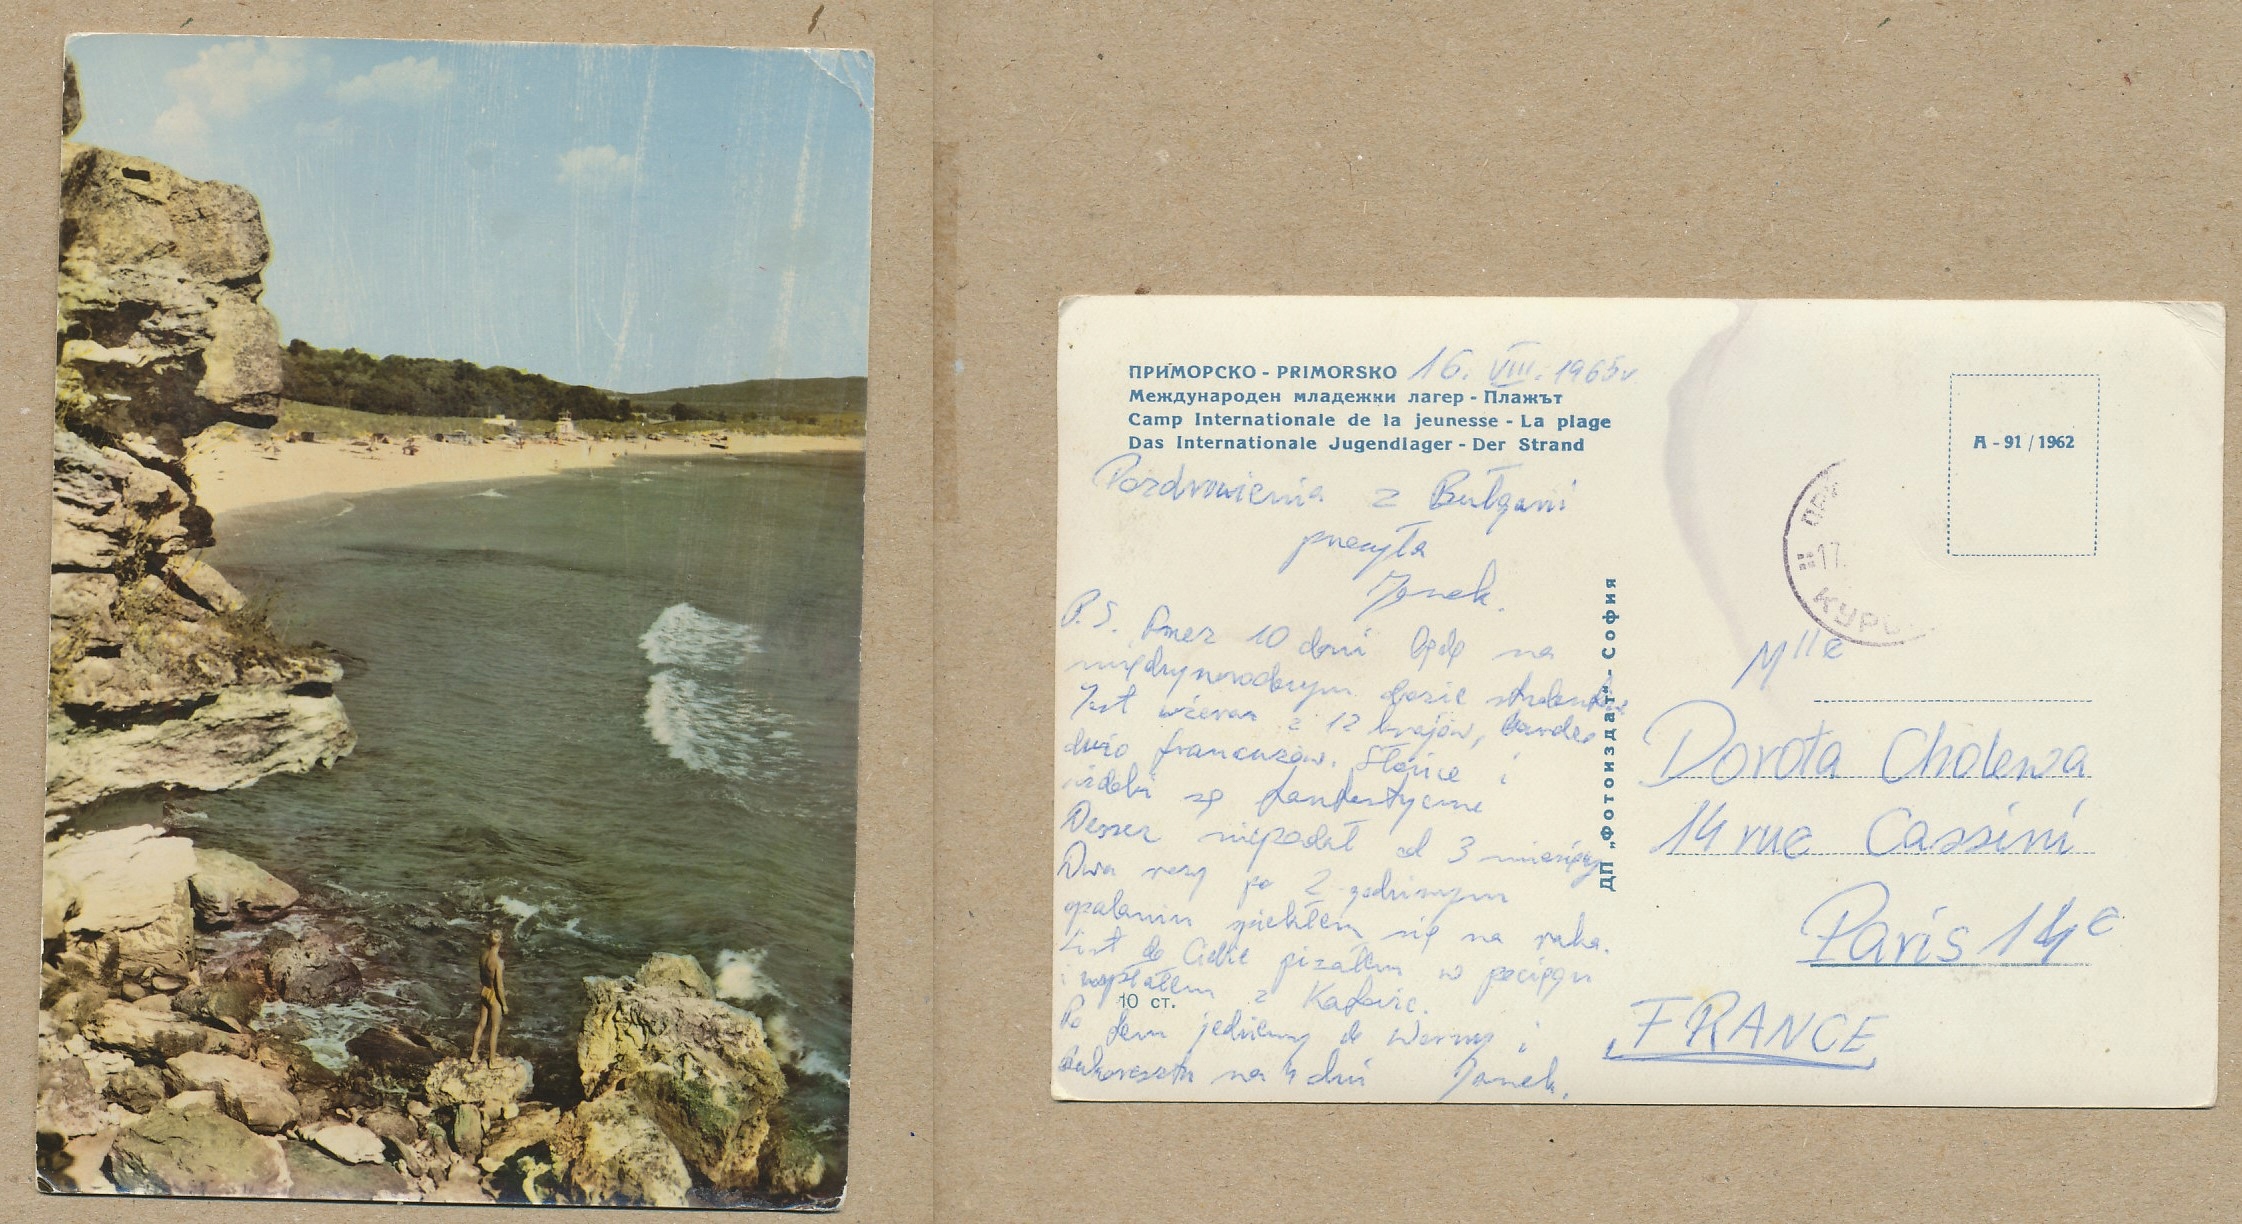 ПРИМОРСКО - PRIMORSKO 16. VIII. 1965r
Международен младежки лагер - Плажът
Camp Internationale de la jeunesse - La plage
Das Internationale Jugendlager - Der Strand
Pozdrowienia z Bułgarii
przesyła
Janek.
P.S. Przez 10 dni będę na
międzynarodowym obozie
Jest z 12 krajów, bardzo
dużo francuzów. Słońce i
są fantastyczne
Deszcz nie padał od 3 miesięcy
Dwa razy po 2 godzinnym
opalaniu spiekłem się na raka.
List do Ciebie pisałem w pociągu
i wysłałem z Katowic.
10 ст.
Po tem jedziemy do Warny i
Bukaresztu na 4 dni Janek.
ДП „Фотоиздат" - София
A - 91 / 1962
ПРИ
17.
КУРО
Mlle
Dorota Cholewa
14 rue Cassini
Paris 14e
FRANCE